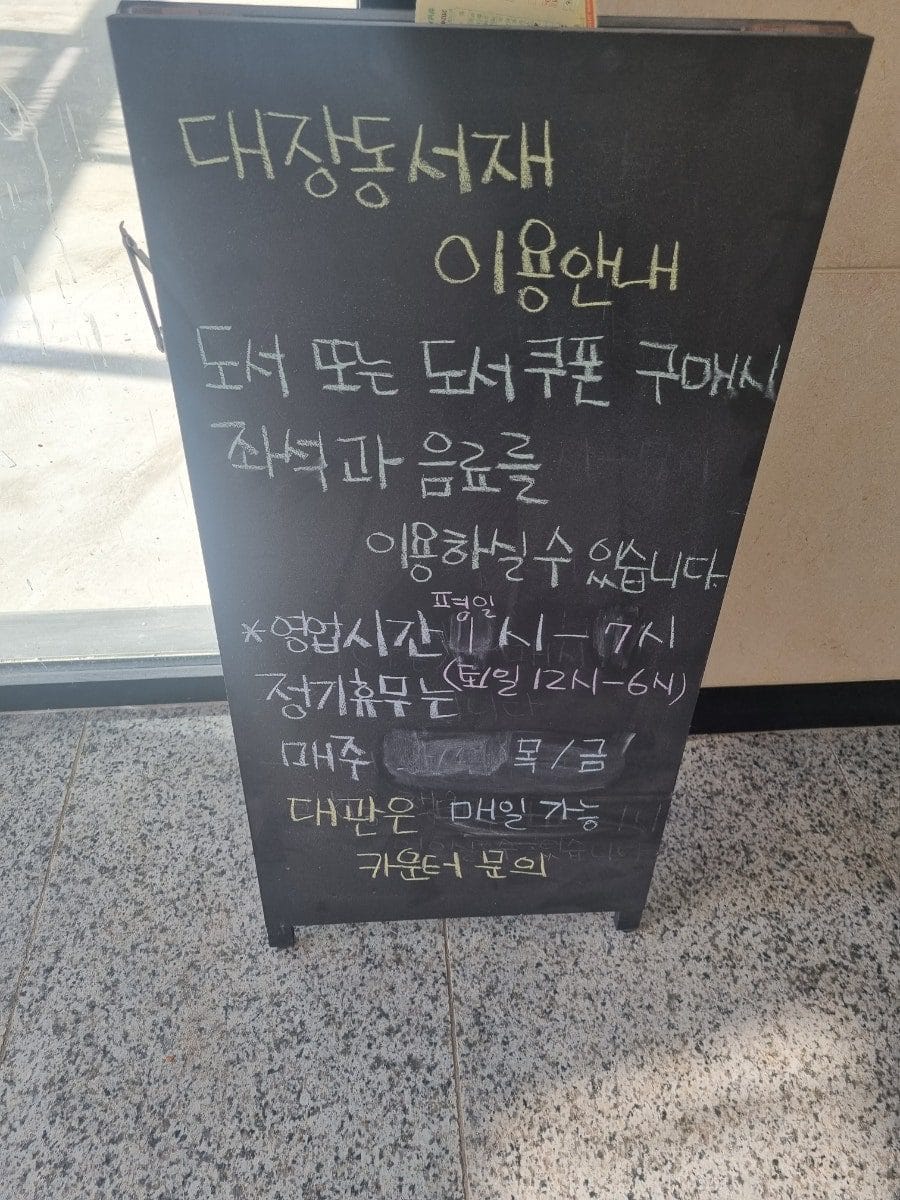 대장동서재
이용안내
도서 또는 도서쿠폰 구매시
좌석과 음료를
이용하실수 있습니다.
평일
*영업시간 1시-7시
(토/일 12시-6시)
정기휴무는
매주 목/금
대관은 매일 가능
카운터 문의